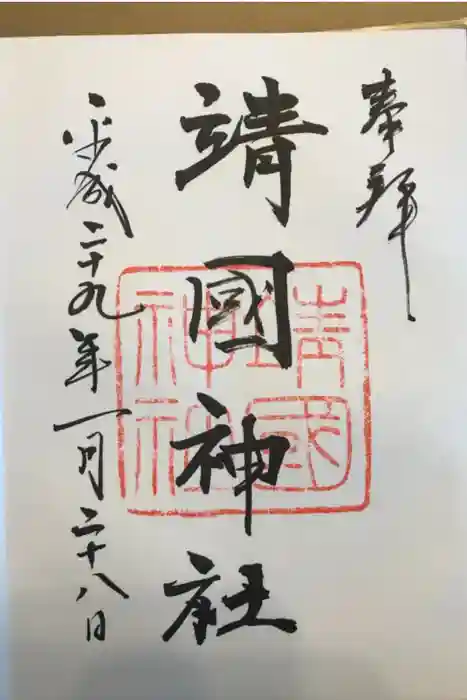 奉拝
靖國神社
靖國
神社
平成二十九年一月二十八日